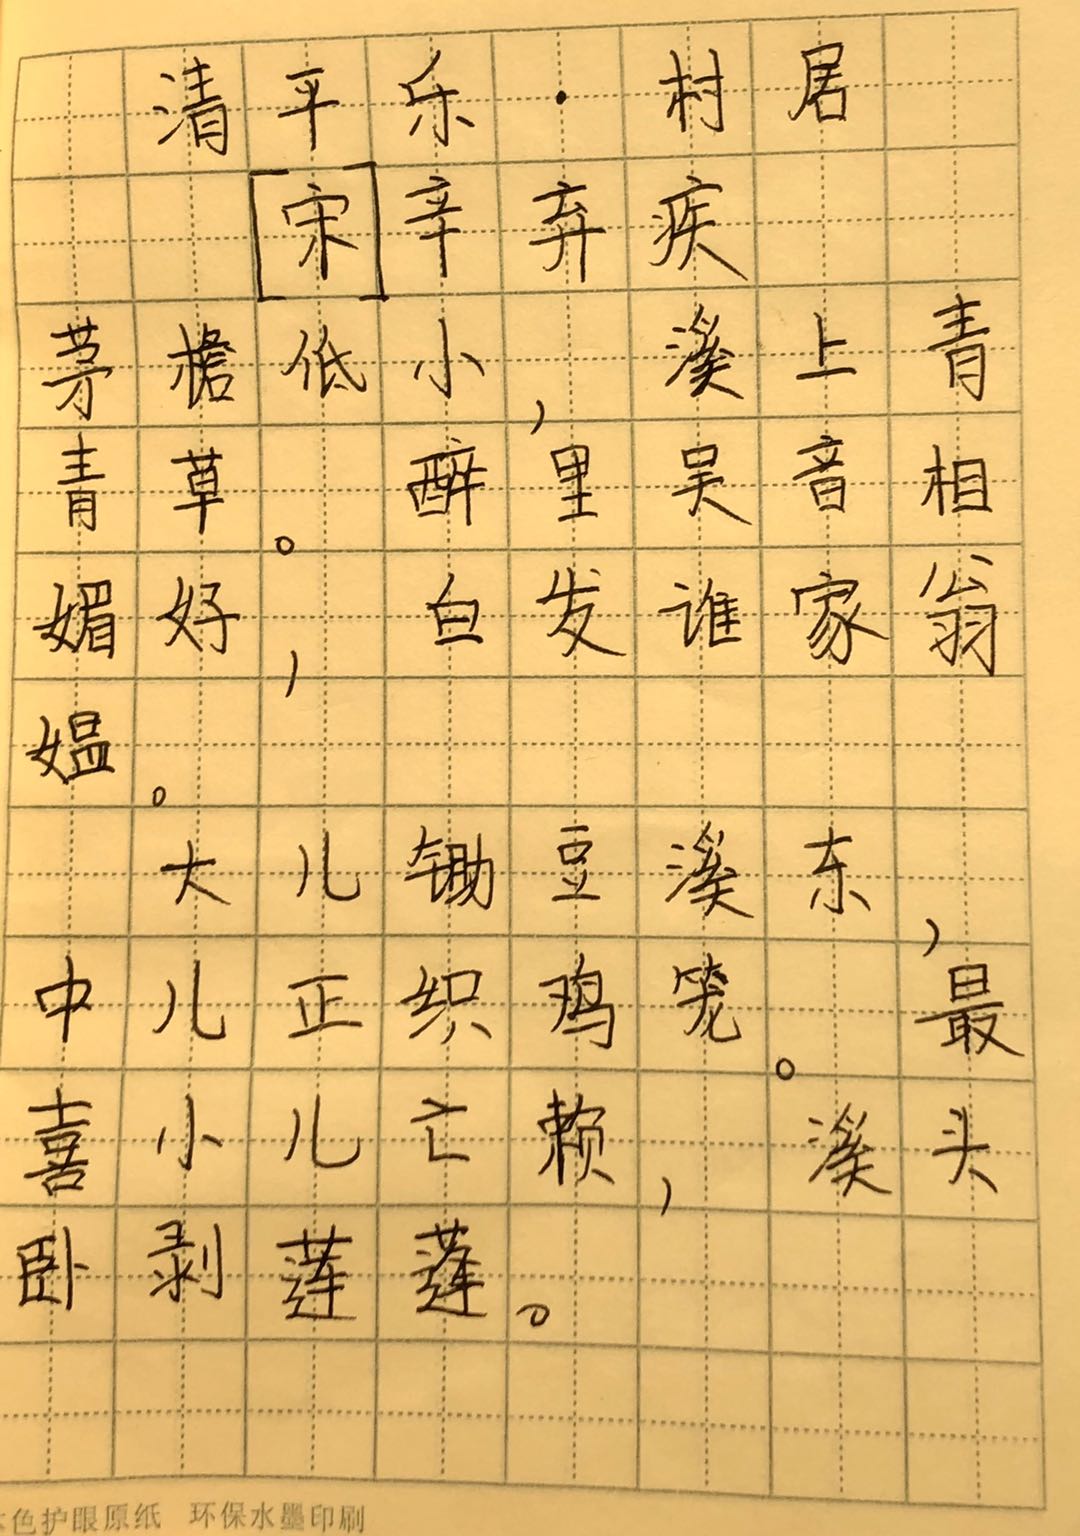 清平乐·村居
[宋]辛弃疾
茅檐低小，溪上青
青草。醉里吴音相
媚好，白发谁家翁
媪。
大儿锄豆溪东，
中儿正织鸡笼。最
喜小儿亡赖，溪头
卧剥莲蓬。
本色护眼原纸 环保水墨印刷